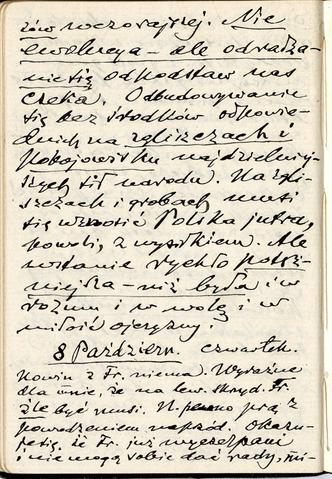 rów wczorajszej. Nie
ewolucya – ale odradza-
nie się od podstaw nas
czeka. Odbudowywanie
się bez środków odpowie-
dnich na zgliszczach i
pobojowisku najdzielniej-
szych sił narodu. Na zgli-
szczach i grobach musi
się wznosić Polska jutra,
powoli, z wysiłkiem. Ale
wstanie rychło potęż-
niejsza – niż była i w
rozum i w wolę i w
miłość ojczyzny.
8 Październ. czwartek.
Nowin z Fr. niema. Wyraźne
dla mnie, że na lew. skrzyd. Fr.
źle być musi. N. prą z
powodzeniem naprzód. Okazu-
je się, iż Fr. już wyczerpani
i nie mogą sobie dać rady, mi-